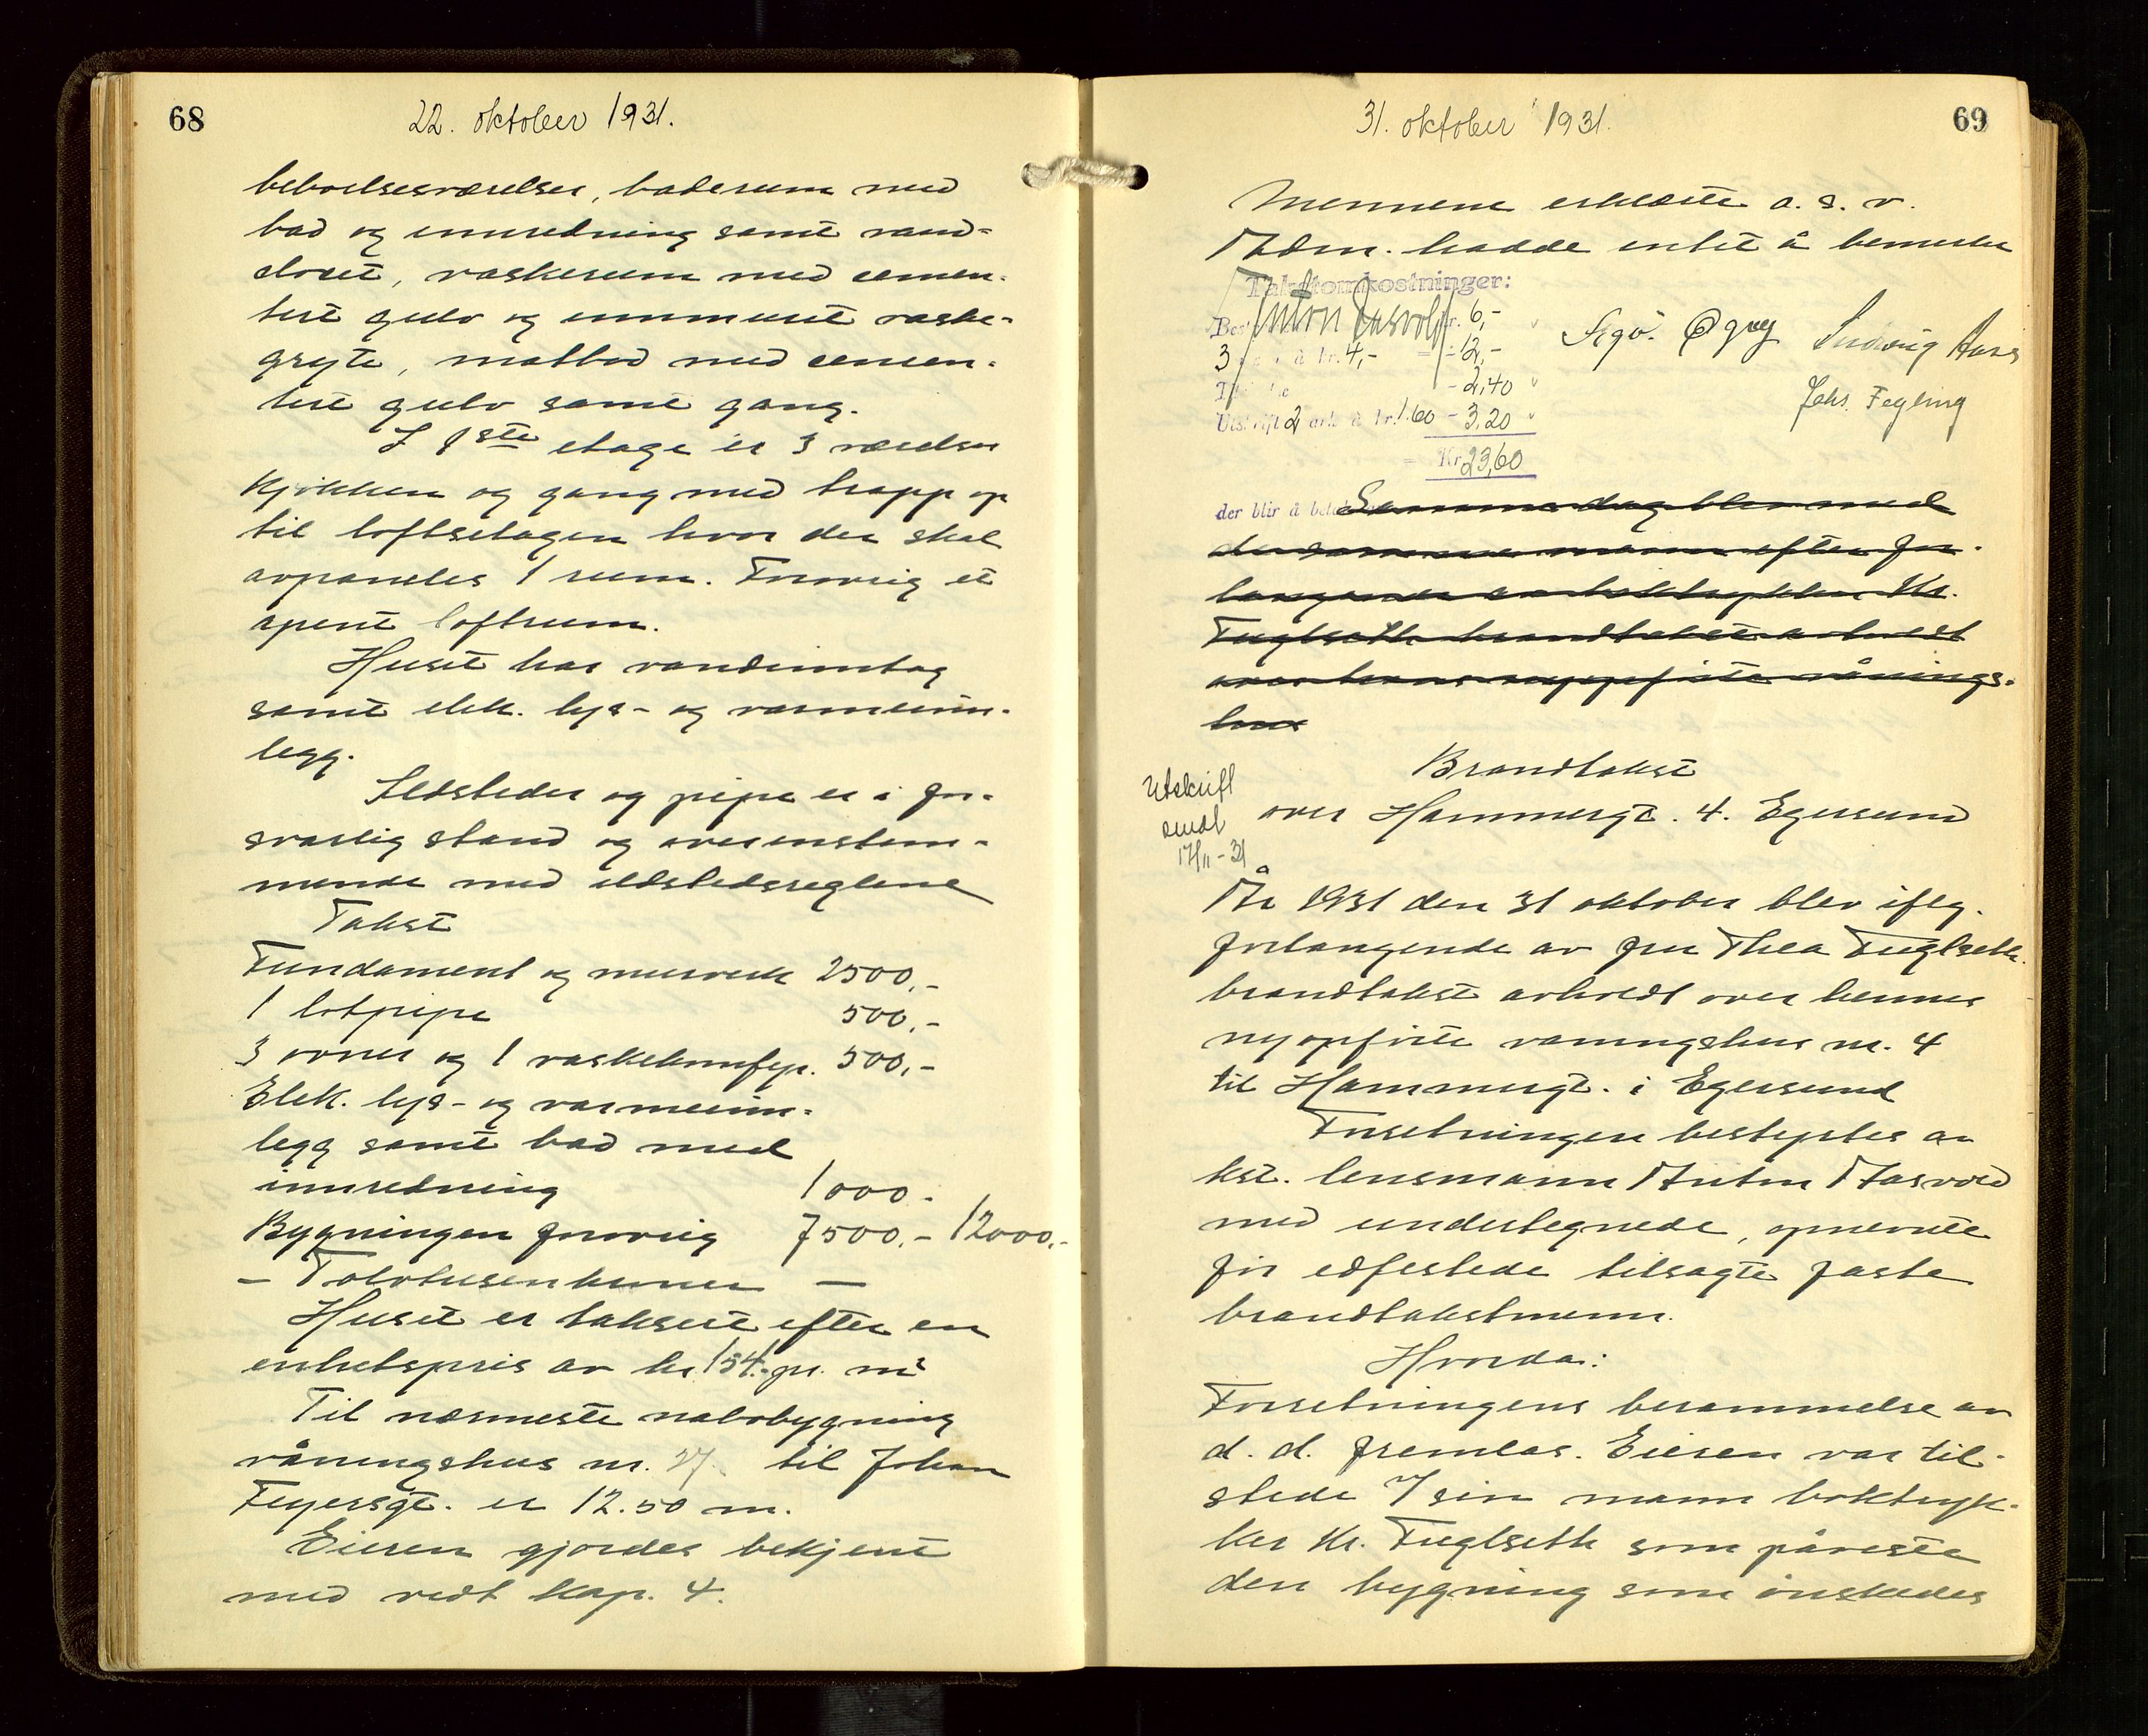 68
22. oktober 1931.
beboelsesværelser, baderum med
bad og innredning samt vand-
closet, vaskerum med cemen-
tert gulv og innmuret vaske-
gryte, matbod med cemen-
tert gulv samt gang.
I 1ste etage er 3 værelser
kjøkken og gang med trapp op
til loftsetagen hvor der skal
avpaneles 1 rum. Forøvrig et
åpent loftrum.
Huset har vandinntag
samt elek. lys- og varmeinn-
legg.
Ildsteder og pipe er i for-
svarlig stand og overenstem-
mende med ildstedsreglene
Takst
Fundament og murverk 2500,-
1 løtpipe 500,-
3 ovner og 1 vaskekomfyr. 500,-
Elek. lys- og varmeinn-
legg samt bad med
innredning 1000.
Bygningen forøvrig 7500.- 12000.-
- Tolvtusenkroner -
Huset er taksert efter en
enhetspris av kr 154.- pr. m²
Til nærmeste nabobygning
våningshus nr. 27 til Johan
Feyersgt. er 12.50 m.
Eieren gjordes bekjent
med vedt kap. 4.
69
31. oktober 1931.
Mennene erklærte o. s. v.
Adm. hadde intet å bemerke
Takstomkostninger:
Anton Aasvold kr. 6,-
3 à kr. 4,- = - 12,-
- 2,40
Utskrift 2 ark à kr. 1.60 - 3,20
= Kr 23,60
Sigv. Ludvig Aase
Johs. Feyling
der blir å
Samme dag blev med
de samme menn efter for-
langende av boktrykker Kr.
Fuglseth brandtakst avholdt
over hans nyopførte vånings-
hus
Brandtakst
over Hammergt. 4. Egersund
Utskrift
sendt
17/11-31
År 1931 den 31 oktober blev iflg.
forlangende av fru Thea Fuglseth
brandtakst avholdt over hennes
nyopførte vaningshus nr. 4
til Hammergt. i Egersund
Forretningen bestyrtes av
kst. lensmann Anton Aasvold
med undertegnede, opnevnte
før edfestede tilsagte faste
brandtakstmenn.
Hvorda:
Forretningens berammelse av
d. d. fremlas. Eieren var til-
stede v/ sin mann boktryk-
ker Kr. Fuglseth som påviste
den bygning som ønskedes